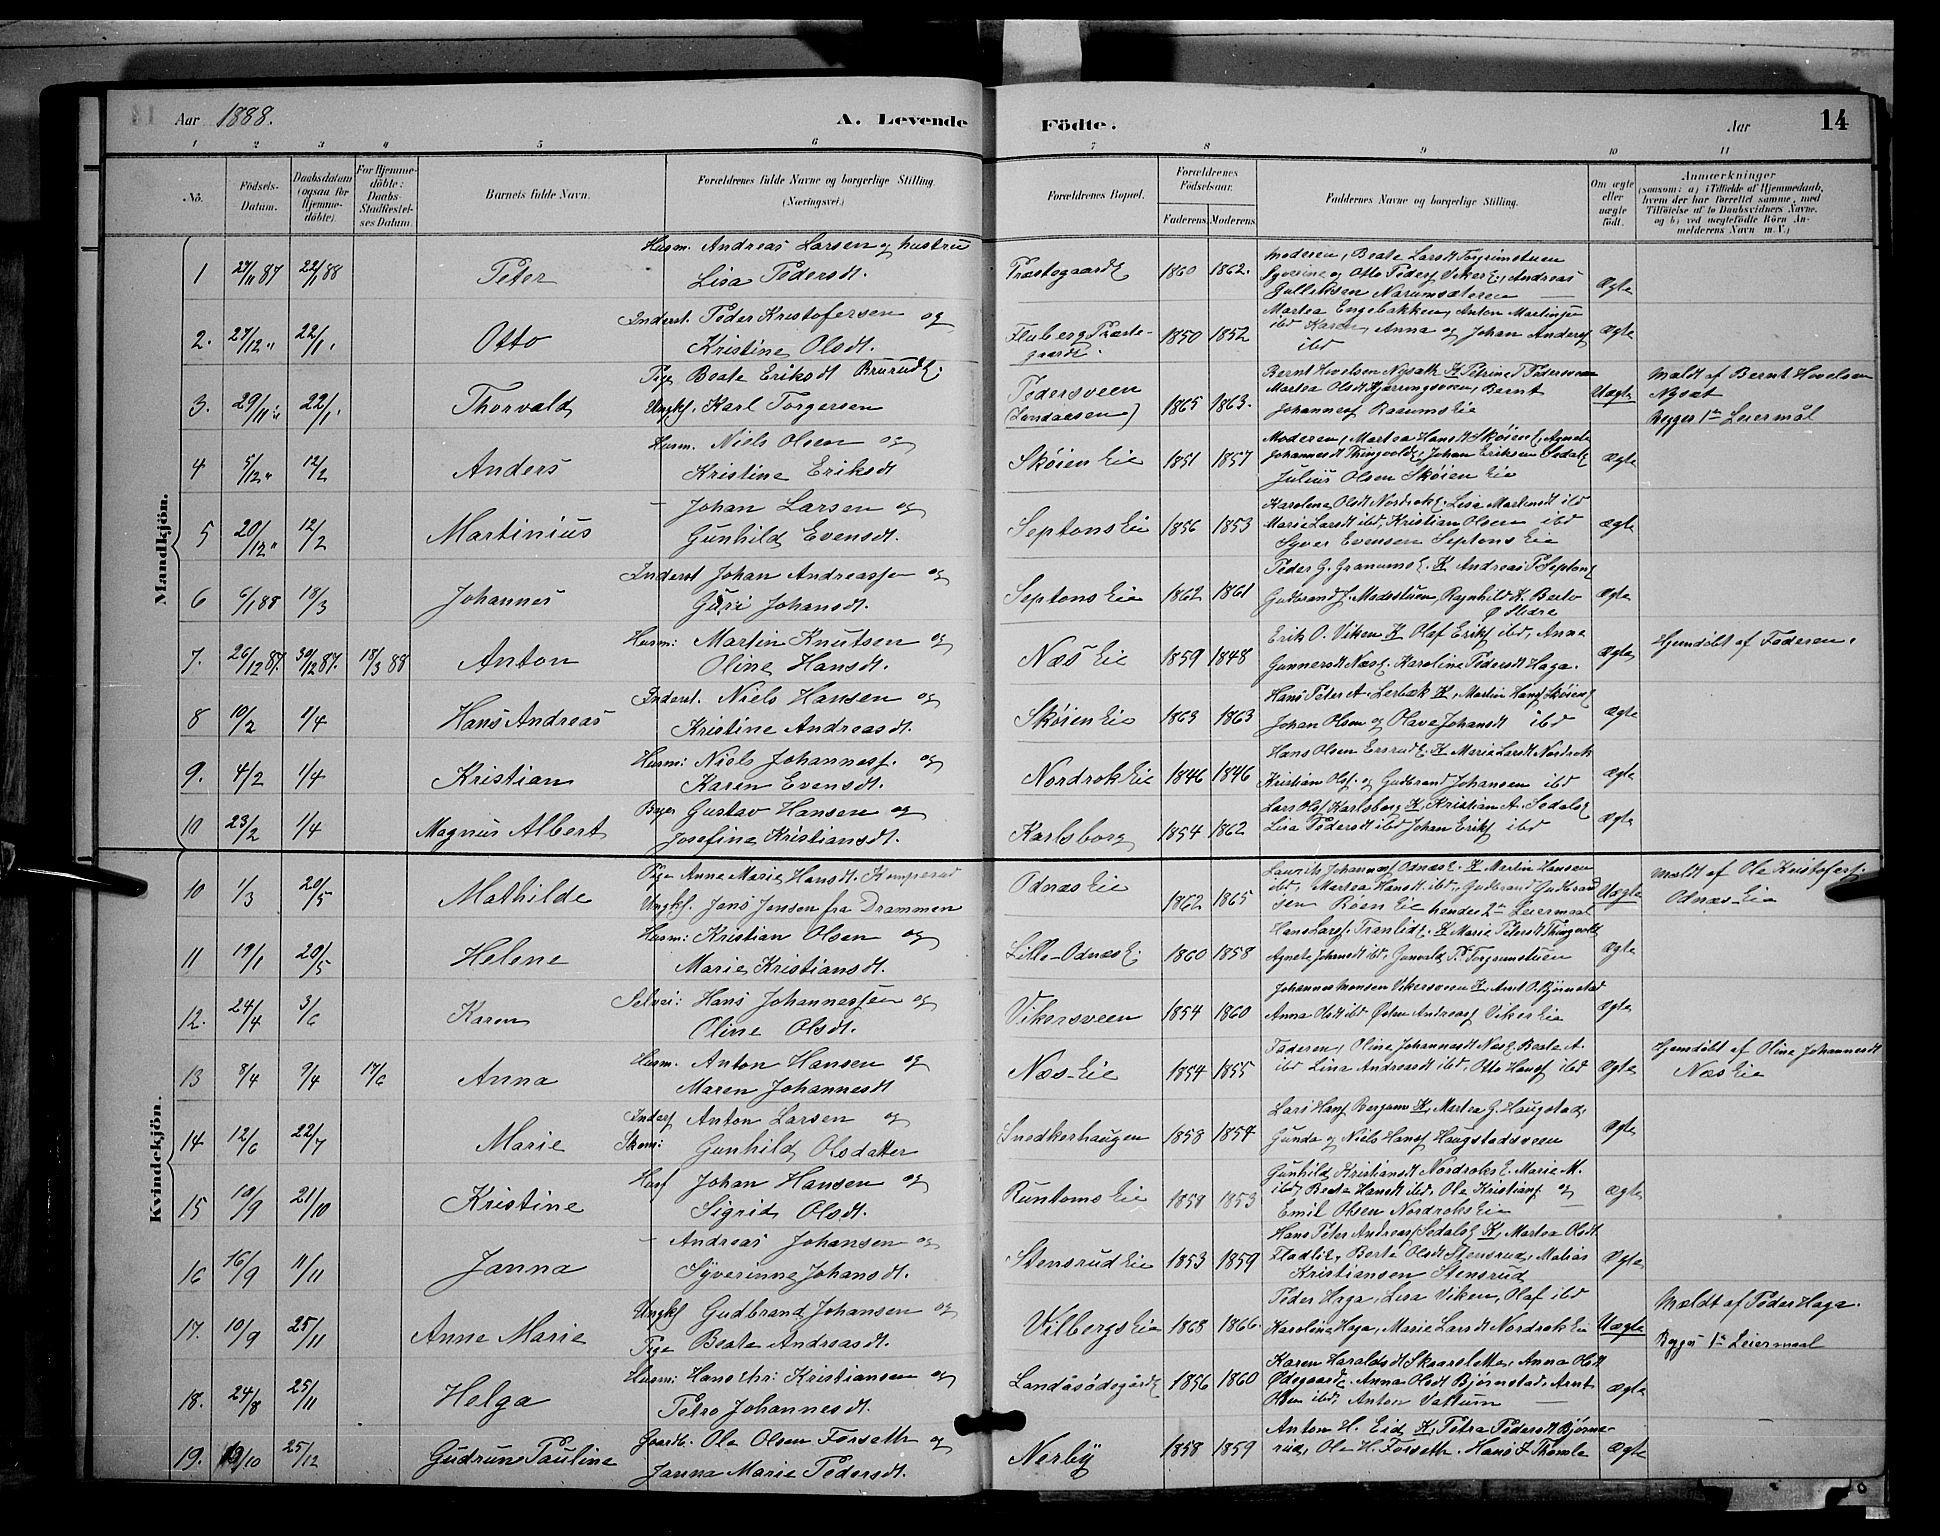 Aar 1888. A. Levende Födte. Aar 14
1 2 3 4 5 6 7 8 9 10 11
No. Födsels-Datum. Daabsdatum (ogsaa for Hjemme-döbte). For Hjemme-döbte: Daabs-Stadfæstelses Datum. Barnets fulde Navn. Forældrenes fulde Navne og borgerlige Stilling. (Næringsvei.) Forældrenes Bopæl. Forældrenes Födselsaar. Faderens. Moderens. Faddernes Navne og borgerlige Stilling. Om ægte eller uægte födt. Anmærkninger (saasom: a) i Tilfælde af Hjemmedaab, hvem der har forrettet samme, med Tilföielse af to Daabsvidners Navne, og b) ved uægtefödte Börn Anmelderens Navn m. V.)
Mandkjön.
1 27/11 87 22/1 88 Peter Husm. Andreas Larsen og hustru
Lisa Pedersdt. Præstegaards E 1860 1862. Moderen, Beate Larsdt Torgrimstuen
Syverine og Otto Peders Viker E., Andreas
Gulliksen Narumsæteren Ægte
2. 27/12 " 22/1 Otto Inderst. Peder Kristofersen og
Kristine Olsdt. Fluberg Præste-
gaards. 1850 1852 Martea Engebakken, Anton Martinsen
ibd Karen, Anna og Johan Andersf
ibd Ægte
3. 29/11 " 22/1 Thorvald Pige Beate Eriksdt Brurud E.
Ungkf. Karl Torgersen Pedersveen
(Landaasen) 1865 1863. Bernt Hovelsen Nysæt K Petrine P Pedersveen
Martea Olsdt Hjerringsveen, Bernt
Johannesf Rasums Eie Uægte Mældt af Bernt Hovelsen
Nysæt
Begges 1ste Leiermål
4 5/12 " 12/2 Anders Husm. Niels Olsen og
Kristine Eriksdt Skøien Eie 1851 1857 Moderen, Martea Hansdt Skøien E, Agnete
Johannesdt Thingvold E, Johan Eriksen Sedal E
Julius Olsen Skøien Eie Ægte
5 20/12 " 12/2 Martinius – Johan Larsen og
Gunhild Evensdt. Septons Eie 1856 1853 Karolene Olsdt Nordrok E. Lisa Martensdt ibd
Marie Larsdt ibd, Kristian Olsen ibd
Syver Evensen Septons Eie Ægte
6 6/1 88 18/3 Johannes Inderst Johan Andreassen og
Guri Johansdt. Septons Eie 1862 1861 Peder G. Granums E. K Andreas P Septon E
Gudbrand J. Madsstuen, Ragnhild K. Berto
Ø Hdre Ægte
7. 26/12 87. 30/12 87. 18/3 88 Anton Husm: Martin Knutsen og
Oline Hansdt. Næs Eie 1859 1848 Erik O. Viken K Olaf Eriksf ibd, Anne
Gunnersdt Næs E. Karoline Pedersdt Haga. Ægte Hjemdöbt af Faderen.
8 10/2 1/4 Hans Andreas Inderst. Niels Hansen og
Kristine Andreasdt. Skøien Eie 1863 1863 Hans Peter A. Lerbæk K, Martin Hansf Skøien E
Johan Olsen og Olave Johansdt ibd Ægte
9. 4/2 1/4 Kristian Husm: Niels Johannesf. og
Karen Evensdt. Nordrok Eie 1846 1846 Hans Olsen Ensrud E. K Marie Larsdt Nordrok
Kristian Olsf. og Gudbrand Johansen ibd Ægte
10 23/2 1/4 Magnus Albert Byer Gustav Hansen og
Josefine Kristiansdt. Karlsborg 1854 1862 Lars Olsf Karlsborg K, Kristian A. Sedals E
Lisa Pedersdt ibd Johan Eriksf ibd Ægte
Kvindekjön.
10 1/3 20/5 Mathilde Pige Anne Marie Hansdt. Kamperud
Ungkf. Jens Jensen fra Drammen Odnæs Eie 1862 1865 Laurits Johannesf Odnæs E. K Martin Hansen
ibd, Martea Hansdt ibd, Gudbrand Gudbrand
sen Røen Eie hendes 2det Leiermaal Uægte Mældt af Ole Kristofersf.
Odnæs Eie
11 19/1 20/5 Helene Husm: Kristian Olsen og
Marie Kristiansdt. Lille-Odnæs E. 1860 1858 Hans Larsf. Tranlid E. K Marie Petersdt Thingvold E
Agnete Johansdt ibd. Gunvald P. Torgrimstuen Ægte
12. 24/4 3/6 Karen Selvei: Hans Johannessen og
Oline Olsdt. Vikersveen 1854 1860 Johannes Monsen Vikersveen K, Arnt O. Bjørnstad
Anna Olsdt ibd Østen Andreasf Viker Eie Ægte
13 8/4 9/4 17/6 Anna Husm. Anton Hansen og
Maren Johannesdt Næs Eie 1854 1855 Faderen, Oline Johannesdt Næs E. Beate A.
ibd Lina Andreasdt ibd. Otto Hansf ibd Ægte Hjemdöbt af Oline Johannesdt
Næs Eie
14 12/6 22/7 Marie Indersf Anton Larsen og
Skom: Gunhild Olsdatter Snedkerhaugen 1858 1854 Lars Hansf Bergum K, Martea G. Haugstad,
Gunda og Niels Hansf Haugstadsveen Ægte
15 10/9 21/10 Kristine Husf Johan Hansen og
Sigrid Olsdt. Runtoms Eie 1858 1853 Gunhild Kristiansdt Nordroks E. Marie M.
ibd, Beate Hansdt ibd. Ole Kristiansf og
Emil Olsen Nordroks Eie Ægte
16 16/9 11/11 Janna – Andreas Johansen og
Syverinne Johansdt. Stensrud Eie 1853 1859 Hans Peter Andreasf Sedals E K, Martea Olsdt
Fladli E, Berte Olsdt Stensrud, Matias
Kristiansen Stensrud Ægte
17. 10/9 25/11 Anne Marie Ungkf Gudbrand Johansen og
Pige Beate Andreasdt. Vilbergs Eie 1868 1866. Peder Haga, Lisa Viken, Olaf ibd
Karoline Haga, Marie Larsdt Nordrok Eie Uægte Mældt af Peder Haga.
Begges 1ste Leiermaal
18. 24/8 25/11 Helga Husm: Hans Chr: Kristiansen og
Petra Johannesdt. Landåsødegård E 1856 1860 Karen Haraldsdt Skaarsletta, Anna Olsdt
Ødegaard E. Anna Olsdt Bjørnstad, Arnt
Olsen ibd, Anton Vattum Ægte
19. 19/10 25/12 Gudrun Pauline Gaardb. Ole Olsen Forseth og
Janna Marie Pedersdt. Nerby 1858 1859 Anton H. Eid K, Petra Pedersdt Bjørne-
rud, Ole H. Forseth. Hans J. Thomle Ægte